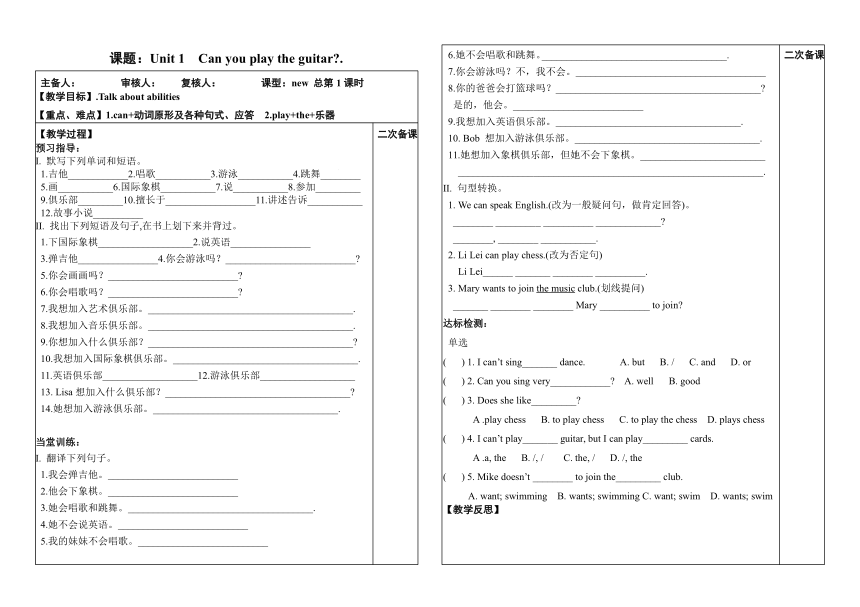 课题：Unit 1 Can you play the guitar?.
主备人： 审核人： 复核人： 课型：new 总第 1 课时
【教学目标】.Talk about abilities
【重点、难点】1.can+动词原形及各种句式、应答 2.play+the+乐器
【教学过程】
二次备课
预习指导：
I. 默写下列单词和短语。
1.吉他____________2.唱歌___________3.游泳___________4.跳舞________
5.画___________6.国际象棋___________7.说___________8.参加_________
9.俱乐部_________10.擅长于__________________11.讲述告诉___________
12.故事小说__________
II. 找出下列短语及句子,在书上划下来并背过。
1.下国际象棋___________________2.说英语________________
3.弹吉他________________4.你会游泳吗？__________________________?
5.你会画画吗？__________________________?
6.你会唱歌吗？__________________________?
7.我想加入艺术俱乐部。_________________________________________.
8.我想加入音乐俱乐部。_________________________________________.
9.你想加入什么俱乐部？_________________________________________?
10.我想加入国际象棋俱乐部。_____________________________________.
11.英语俱乐部___________________12.游泳俱乐部___________________
13. Lisa 想加入什么俱乐部？_____________________________________?
14.她想加入游泳俱乐部。_____________________________________.
当堂训练：
I. 翻译下列句子。
1.我会弹吉他。__________________________
2.他会下象棋。__________________________
3.她会唱歌和跳舞。_____________________________________.
4.她不会说英语。__________________________
5.我的妹妹不会唱歌。__________________________
6.她不会唱歌和跳舞。_____________________________________.
二次备课
7.你会游泳吗？不，我不会。______________________________________
8.你的爸爸会打篮球吗？_________________________________________?
是的，他会。__________________________
9.我想加入英语俱乐部。_____________________________________.
10. Bob 想加入游泳俱乐部。_____________________________________.
11.她想加入象棋俱乐部，但她不会下象棋。_________________________
_____________________________________________________________.
II. 句型转换。
1. We can speak English.(改为一般疑问句，做肯定回答)。
________ _________ ________ _____________?
________, ________ ___________.
2. Li Lei can play chess.(改为否定句)
Li Lei______ _______ ________ __________.
3. Mary wants to join the music club.(划线提问)
_______ ________ ________ Mary __________ to join?
达标检测：
单选
( ) 1. I can’t sing_______ dance. A. but B. / C. and D. or
( ) 2. Can you sing very____________? A. well B. good
( ) 3. Does she like_________?
A .play chess B. to play chess C. to play the chess D. plays chess
( ) 4. I can’t play_______ guitar, but I can play_________ cards.
A .a, the B. /, / C. the, / D. /, the
( ) 5. Mike doesn’t ________ to join the_________ club.
A. want; swimming B. wants; swimming C. want; swim D. wants; swim
【教学反思】